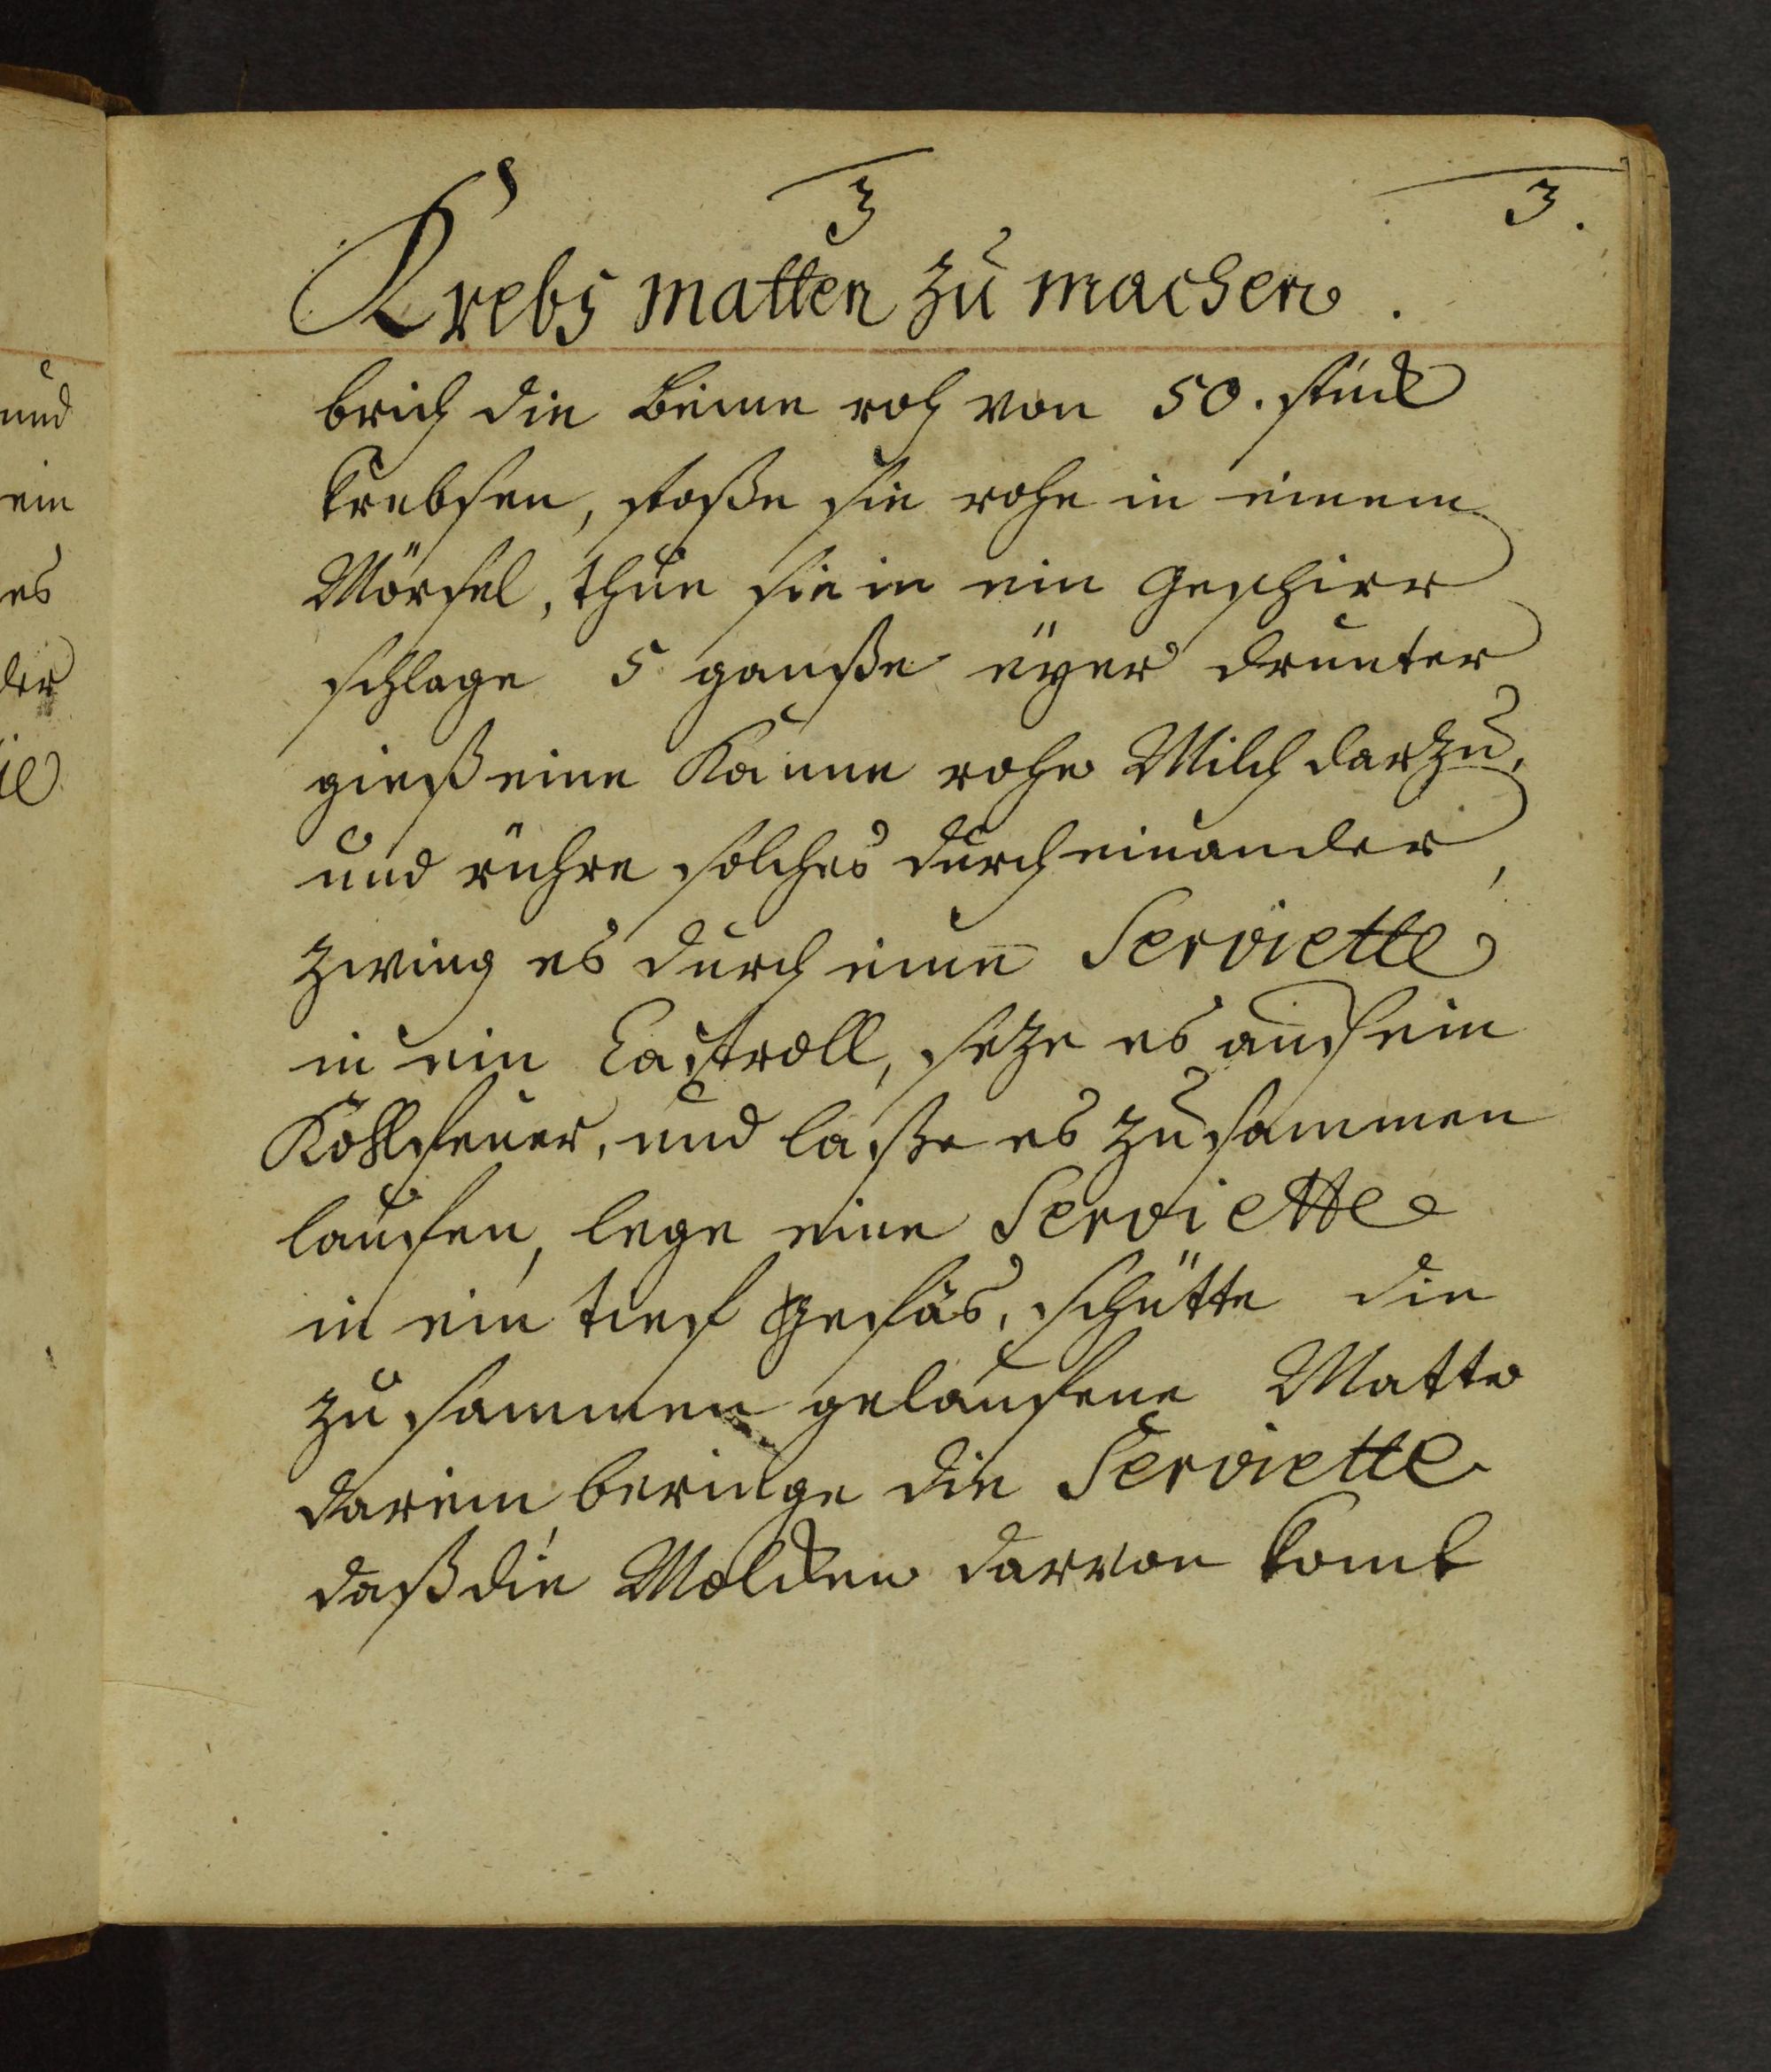 3
3.
Krebs matten zu machen.
brich die Beine roh von 50. stück
Krebsen, stoße sie rohe in einem
Mörsel, thue sie in ein geschirr
schlage 5 ganße eÿer drunter
gieß eine Kanne rohe Milch darzu,
und rühre solches durcheinander,
zwing es durch eine Serviette
in ein Castroll, seze es auf ein
Kohlfeuer, und laße es zusammen
laufen, lege eine Serviette
in ein tief gefäs, schütte die
zusammen gelaufene Matte
darein, beringe die Serviette
daß die Molcken darvon komt
und
ein
es
der